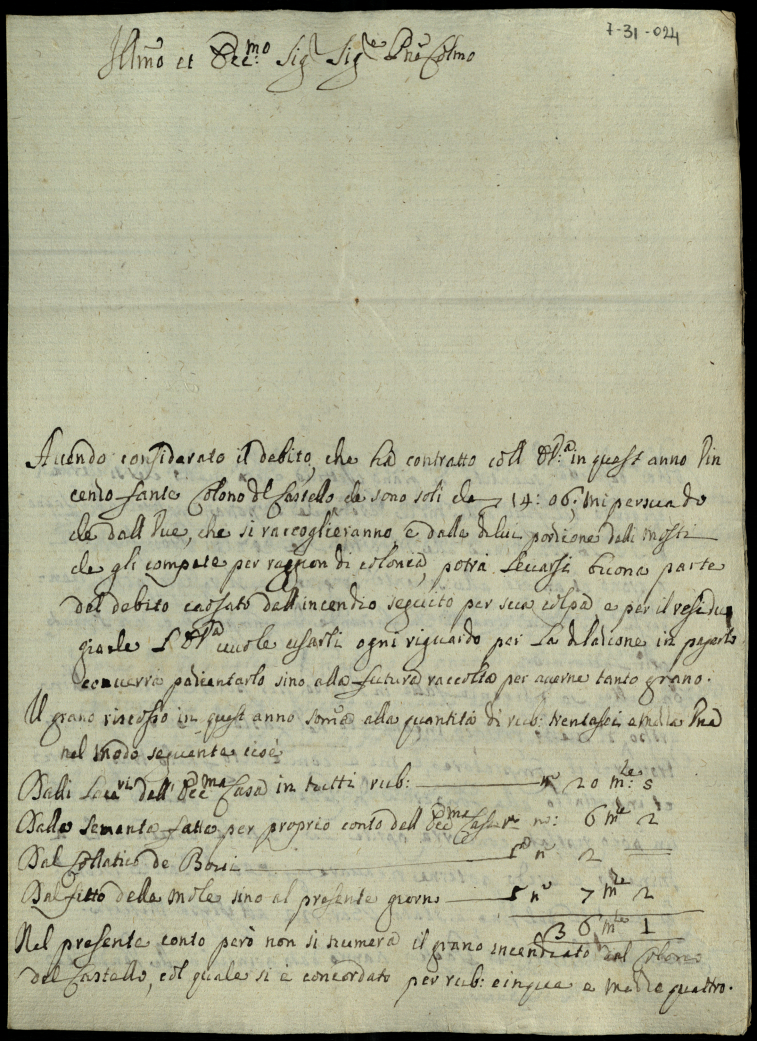 7-31-024
Illmo et Ecc:mo Sig Sig.e Pne Colmo
Auendo considerato il debito, che ha contratto coll' in quest anno Vin
cenzo Sante Colono del Castello che sono soli 14: 06, mi persuado
che dall Vue, che si raccoglieranno, e dalla di lui porzione delli mosti
che gli compete per raggion di colonia, potrà leuarsi buona parte
del debito causato dall'incendio seguito per sua colpa e per il residu
giache uuole usarli ogni riguardo per la dilazione in pagarlo
conuerrà pazientarlo sino alla futura raccolta per auerne tanto grano.
Il grano riscosso in quest anno soma alla quantità di rub: trentasei e mezza Una
nel modo seguente cioè
Dalli dell' Ecc:ma Casa in tutti rub: n° 20 m:le 5
Dalla Sementa fatta per proprio conto dell Ecc:ma Casa r n°: 6 m:le 2
Dal de r n° 2
Dal fitto della Mole sino al presente giorno r n° 7 m:le 2
36 m:le 1
Nel presente conto però non si numera il grano incendiato dal Colono
del Castello, col quale si è concordato per rub: cinque e mezze quattro.